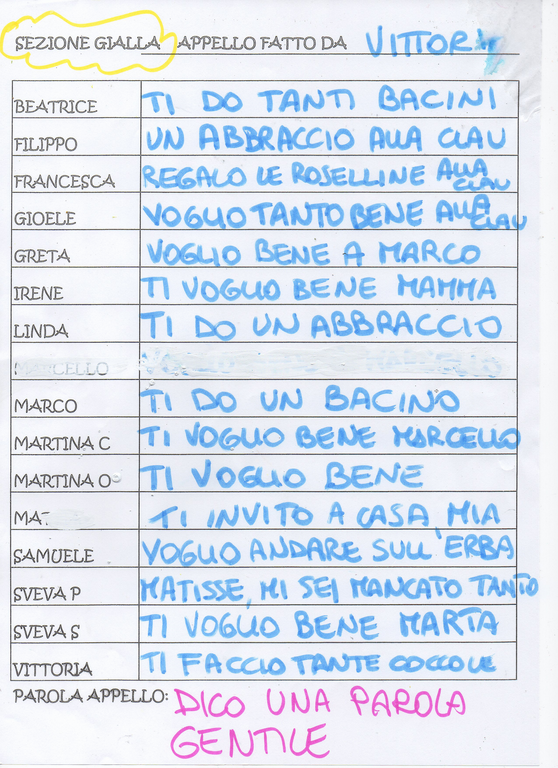 SEZIONE GIALLA APPELLO FATTO DA VITTORIA
BEATRICE TI DO TANTI BACINI
FILIPPO UN ABBRACCIO ALLA CLAU
FRANCESCA REGALO LE ROSELLINE ALLA CLAU
GIOELE VOGLIO TANTO BENE ALLA CLAU
GRETA VOGLIO BENE A MARCO
IRENE TI VOGLIO BENE MAMMA
LINDA TI DO UN ABBRACCIO
MARCELLO VOGLIO
MARCO TI DO UN BACINO
MARTINA C TI VOGLIO BENE MARCELLO
MARTINA O TI VOGLIO BENE
MAT TI INVITO A CASA MIA
SAMUELE VOGLIO ANDARE SULL'ERBA
SVEVA P MATISSE, MI SEI MANCATO TANTO
SVEVA S TI VOGLIO BENE MARTA
VITTORIA TI FACCIO TANTE COCCOLE
PAROLA APPELLO: DICO UNA PAROLA
GENTILE